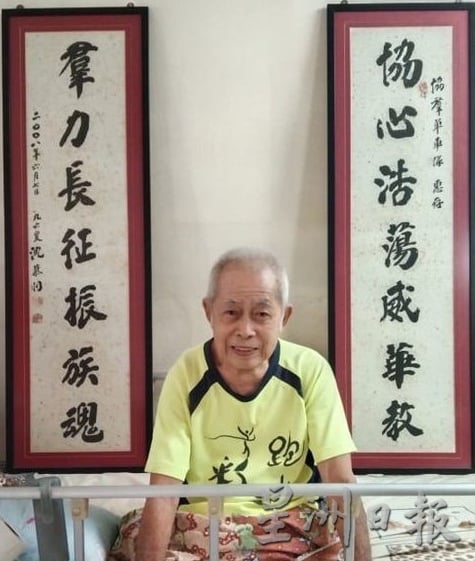 協羣單車隊 惠存
協心浩蕩威華教
羣力長征振族魂
二〇〇八年六月七日 九六叟 沈慕羽
跑
彩
星洲日報